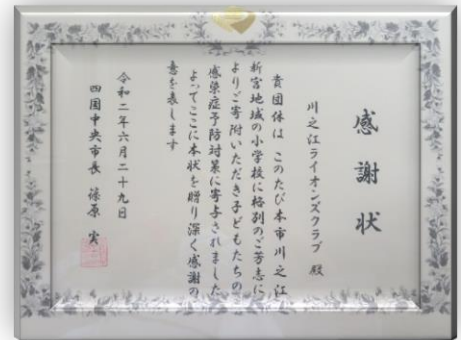 感謝状
川之江ライオンズクラブ 殿
貴団体は このたび本市川之江
新宮地域の小学校に格別のご芳志に
よりご寄附いただき子どもたちの
感染症予防対策に寄与されました
よってここに本状を贈り深く感謝の
意を表します
令和二年六月二十九日
四国中央市長 篠原 実